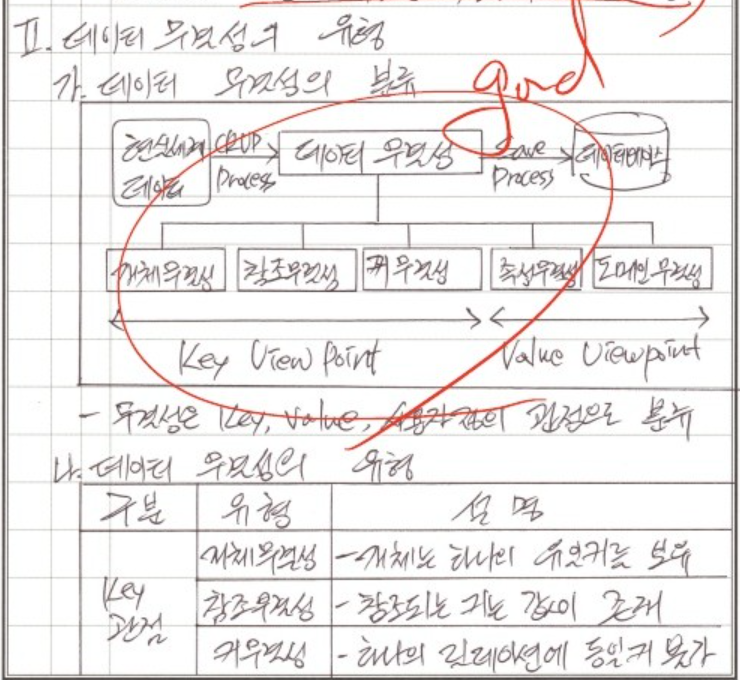 II. 데이터 무결성의 유형
가. 데이터 무결성의 분류
good
현실세계 데이터
CRUD Process
데이터 무결성
Save Process
데이터베이스
개체무결성 참조무결성 키무결성 속성무결성 도메인무결성
Key View Point Value Viewpoint
- 무결성은 Key, Value, 사용자정의 관점으로 분류
나. 데이터 무결성의 유형
구분 유형 설명
Key 관점
개체무결성 - 개체는 하나의 유일키를 보유
참조무결성 - 참조되는 키는 값이 존재
키무결성 - 하나의 릴레이션에 동일키 불가